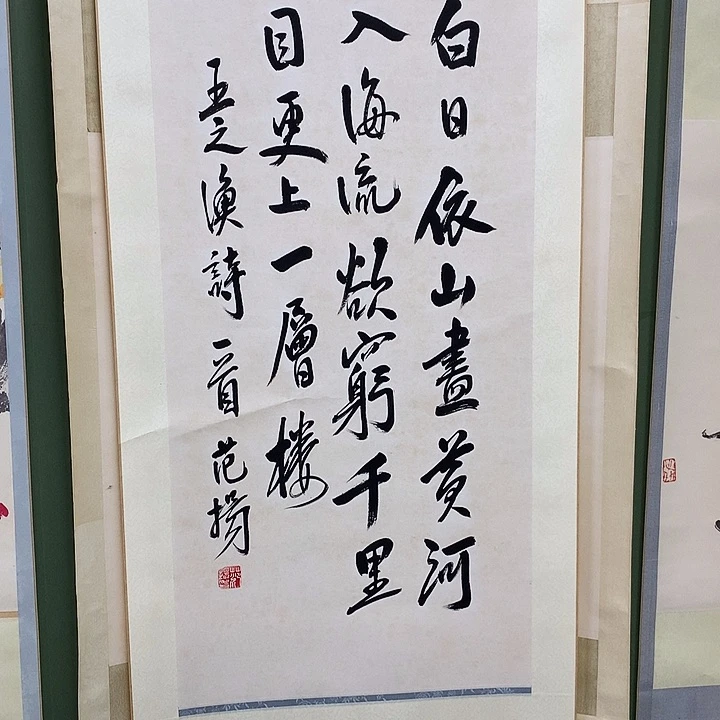 白日依山盡黄河
入海流欲窮千里
目更上一層楼
王之渙詩一首 范揚